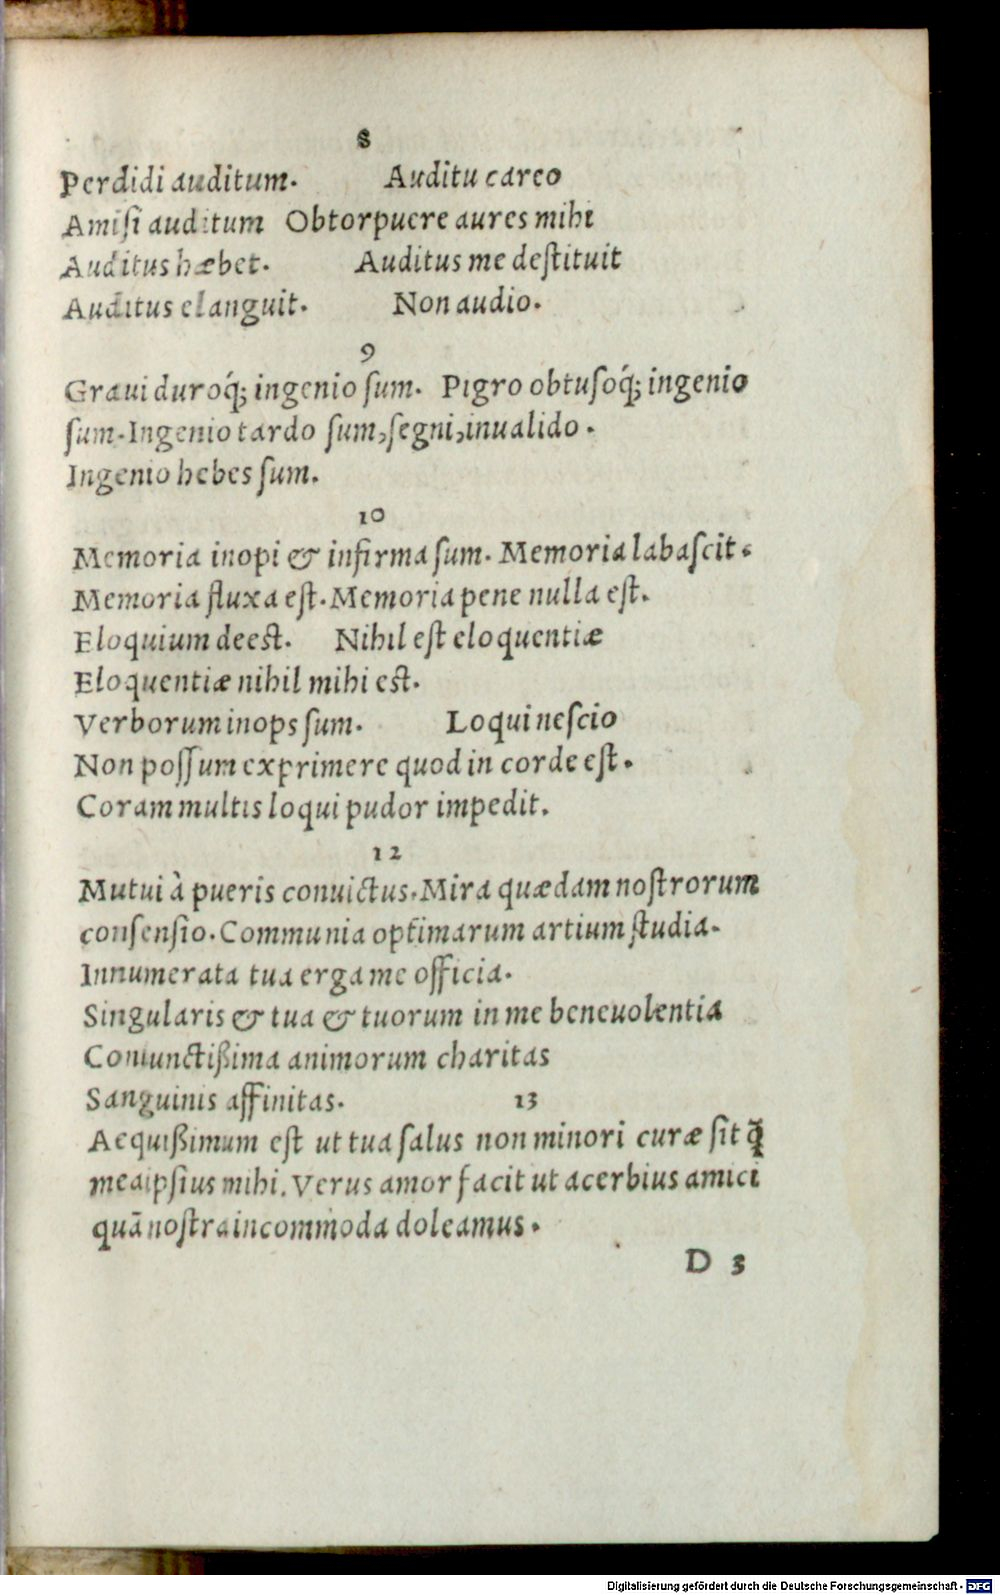 8
Perdidi auditum. Auditu careo
Amiſi auditum Obtorpuere aures mihi
Auditus hæbet. Auditus me deſtituit
Auditus elanguit. Non audio.
9
Graui duroq́; ingenio ſum. Pigro obtuſoq́; ingenio
ſum. Ingenio tardo ſum, ſegni, inualido.
Ingenio hebes ſum.
10
Memoria inopi & infirma ſum. Memoria labaſcit.
Memoria fluxa eſt. Memoria pene nulla eſt.
Eloquium deest. Nihil eſt eloquentiæ
Eloquentiæ nihil mihi est.
Verborum inops ſum. Loqui neſcio
Non poſſum exprimere quod in corde eſt.
Coram multis loqui pudor impedit.
12
Mutui à pueris conuictus. Mira quædam noſtrorum
conſenſio. Communia optimarum artium ſtudia.
Innumerata tua erga me officia.
Singularis & tua & tuorum in me beneuolentia
Coniunctißima animorum charitas
Sanguinis affinitas. 13
Aequißimum eſt ut tua ſalus non minori curæ ſit q̃
mea ipſius mihi. Verus amor facit ut acerbius amici
quã noſtra incommoda doleamus.
D 3
Digitalisierung gefördert durch die Deutsche Forschungsgemeinschaft - DFG